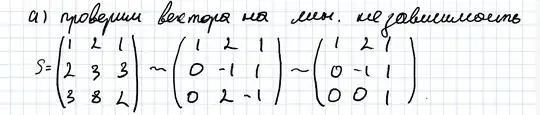 а) проверим вектора на лин. независимость
S= (1 2 1; 2 3 3; 3 8 2) ~ (1 2 1; 0 -1 1; 0 2 -1) ~ (1 2 1; 0 -1 1; 0 0 1)